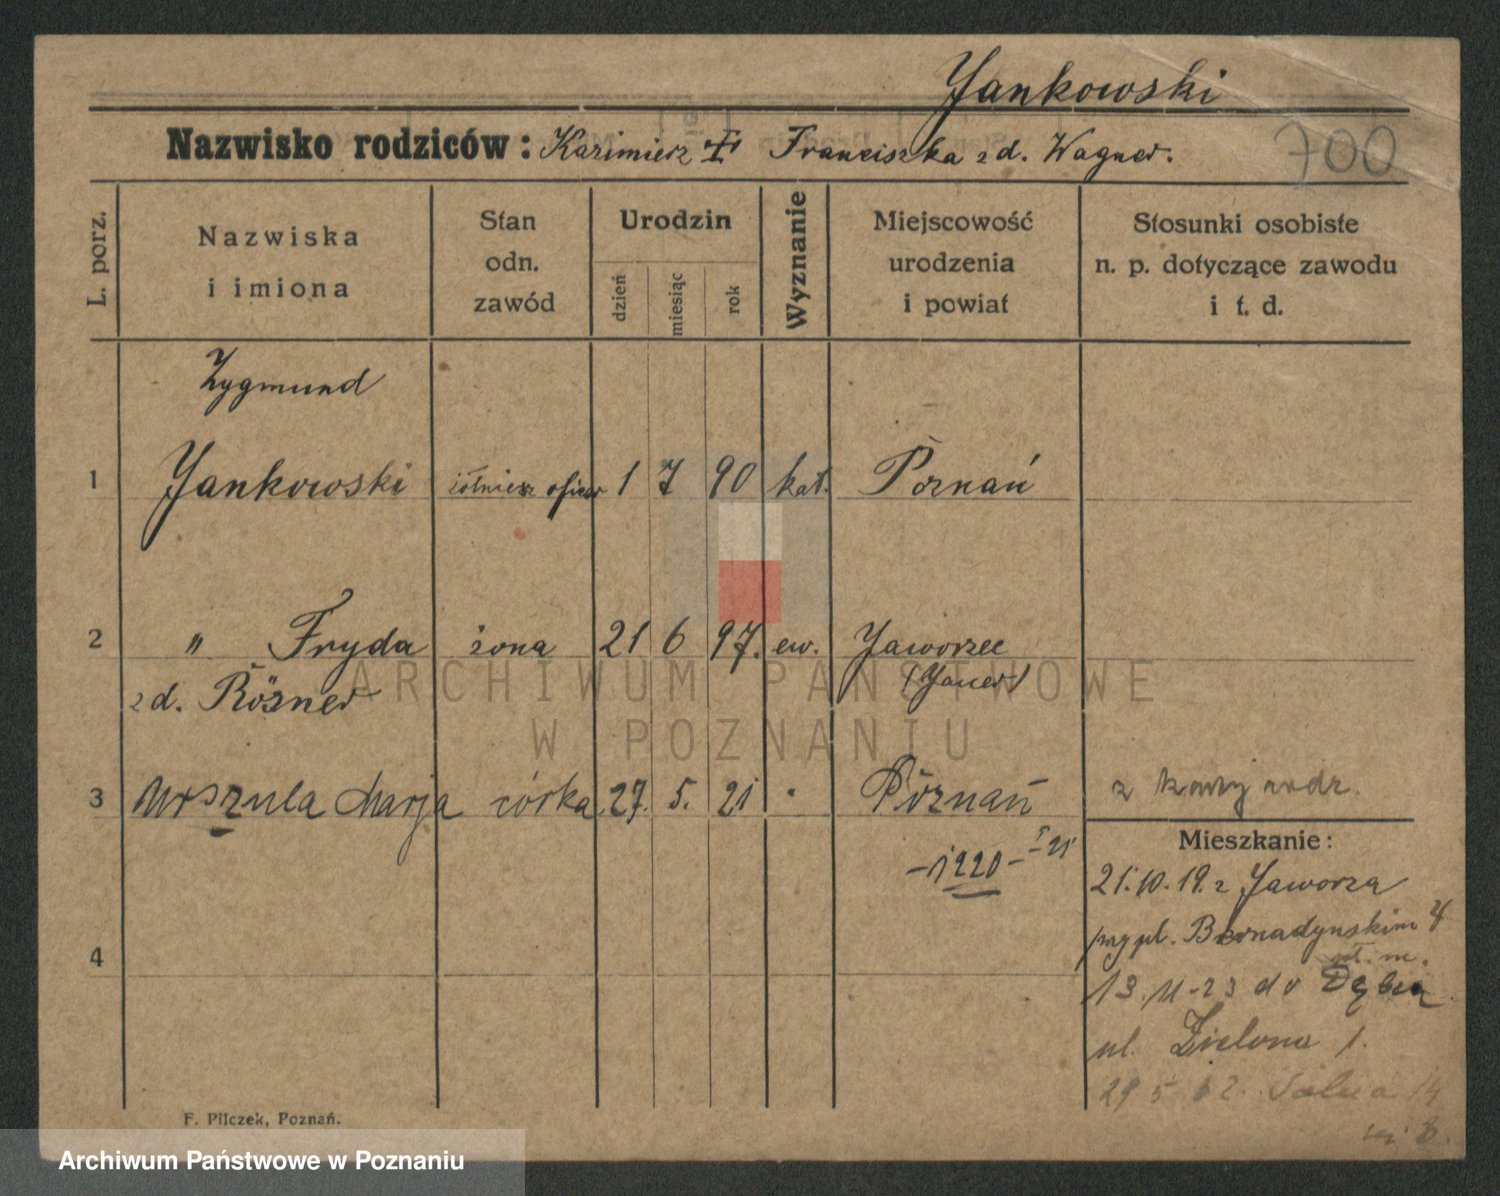 Jankowski
Nazwisko rodziców: Kazimierz † Franciszka zd. Wagner.
700
L. porz.
Nazwiska
i imiona
Stan
odn.
zawód
Urodzin
dzień
miesiąc
rok
Wyznanie
Miejscowość
urodzenia
i powiat
Stosunki osobiste
n. p. dotyczące zawodu
i t. d.
Zygmund
1 Jankowski żołnierz oficer 1 7 90 kat. Poznań
2 " Fryda żona 21 6 97. ew. Jaworze
zd. Rösner (Jauer)
3 Urszula Marja córka 27. 5. 21 " Poznań
z rodz.
-1220- I 21
Mieszkanie:
21.10.19. z Jaworza
przy pl. Bernadynskim 4
13.11-23 do Dębca
ul. Zielona 1.
4
29 5 Solna 14
F. Pilczek, Poznań.
ARCHIWUM PAŃSTWOWE
W POZNANIU
Archiwum Państwowe w Poznaniu